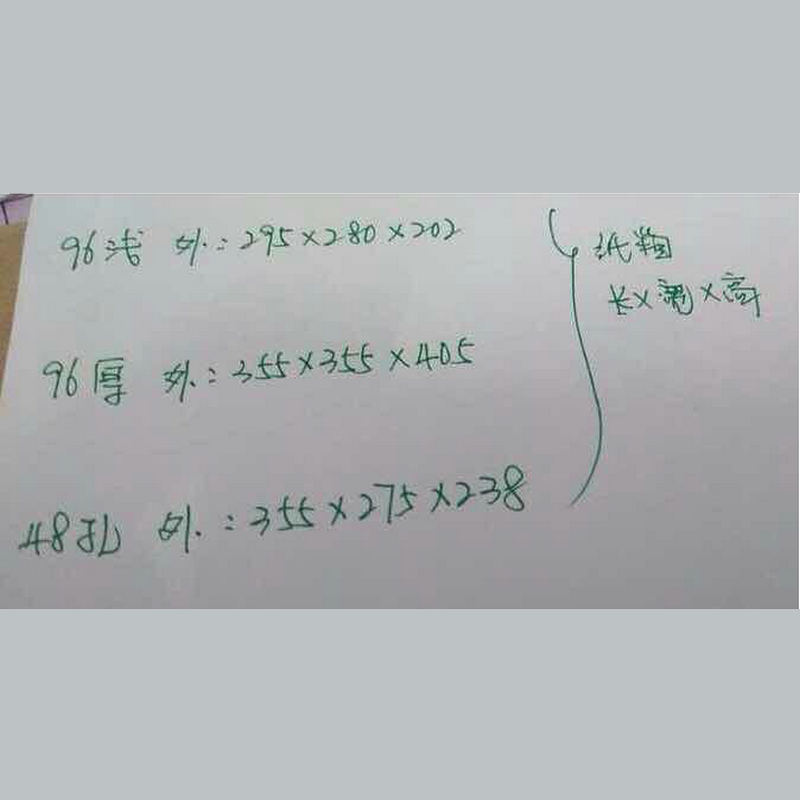 96浅 外:295×280×202
纸箱
长×宽×高
96厚 外:355×355×405
48孔 外:355×275×238